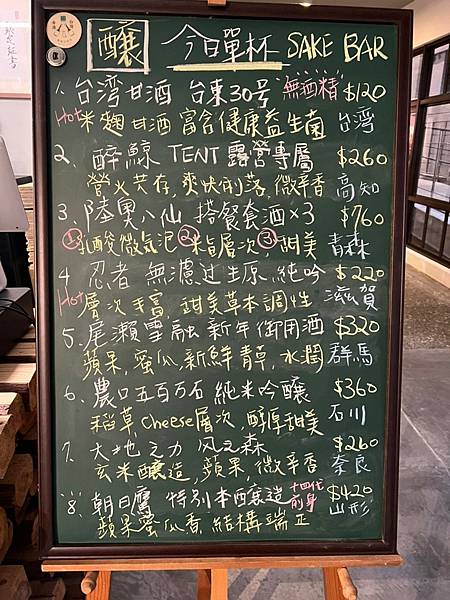 釀 今日單杯 SAKE BAR
1. 台湾甘酒 台東30号 無酒精 $120
Hot 米麴甘酒 富含健康益生菌 台灣
2. 醉鯨 TENT 露營專屬 $260
營火共存, 爽快俐落, 微辛香 高知
3. 陸奥八仙 搭餐套酒×3 $760
① 乳酸微氣泡 ② 米旨層次 ③ 甜美 青森
4 忍者 無濾过生原 純吟 $220
Hot 層次丰富, 甜美草本調性 滋賀
5. 尾瀨雪融 新年御用酒 $320
蘋果, 蜜瓜, 新鮮青草, 水潤 群馬
6. 農口五百万石 純米吟釀 $360
稻草 Cheese 層次, 醇厚甜美 石川
7. 大地之力 风之森 $260
玄米釀造, 蘋果, 微辛香 奈良
8. 朝日鷹 特别本釀造 十四代前身 $420
蘋果蜜瓜香, 結構端正 山形